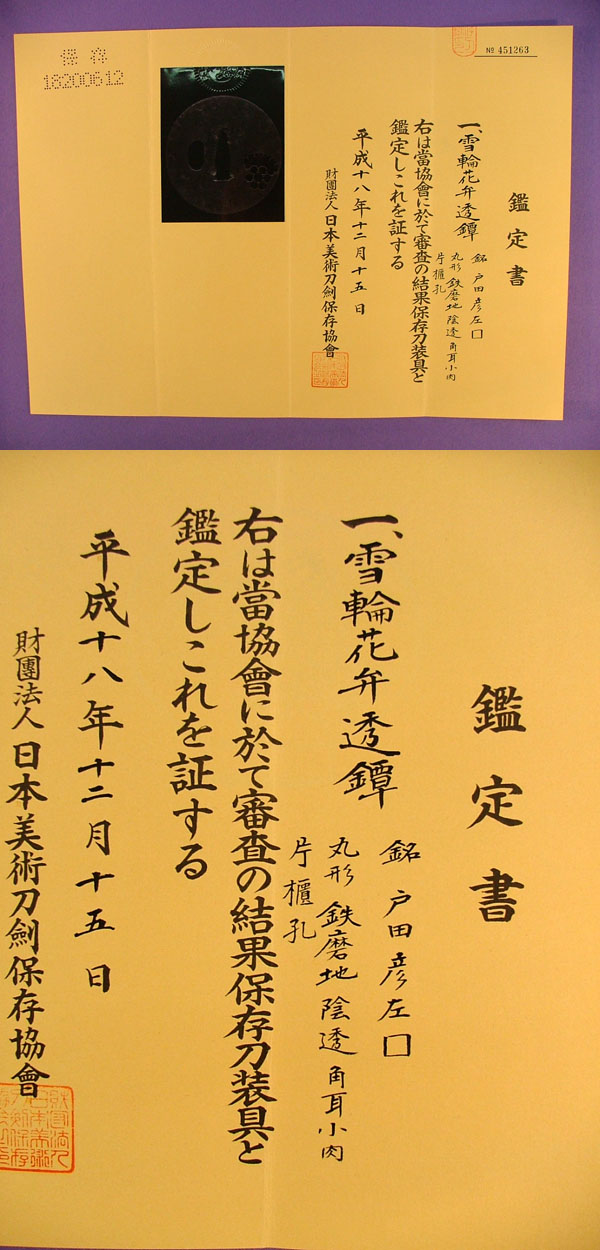 保存
18200612
№ 451263
鑑定書
一、雪輪花弁透鐔
銘 戸田彦左□
丸形 鉄磨地 陰透 角耳小肉
片櫃孔
右は當協會に於て審査の結果保存刀装具と
鑑定しこれを証する
平成十八年十二月十五日
財團法人 日本美術刀劍保存協會
鑑定書
一、雪輪花弁透鐔
銘 戸田彦左□
丸形 鉄磨地 陰透 角耳小肉
片櫃孔
右は當協會に於て審査の結果保存刀装具と
鑑定しこれを証する
平成十八年十二月十五日
財團法人 日本美術刀劍保存協會